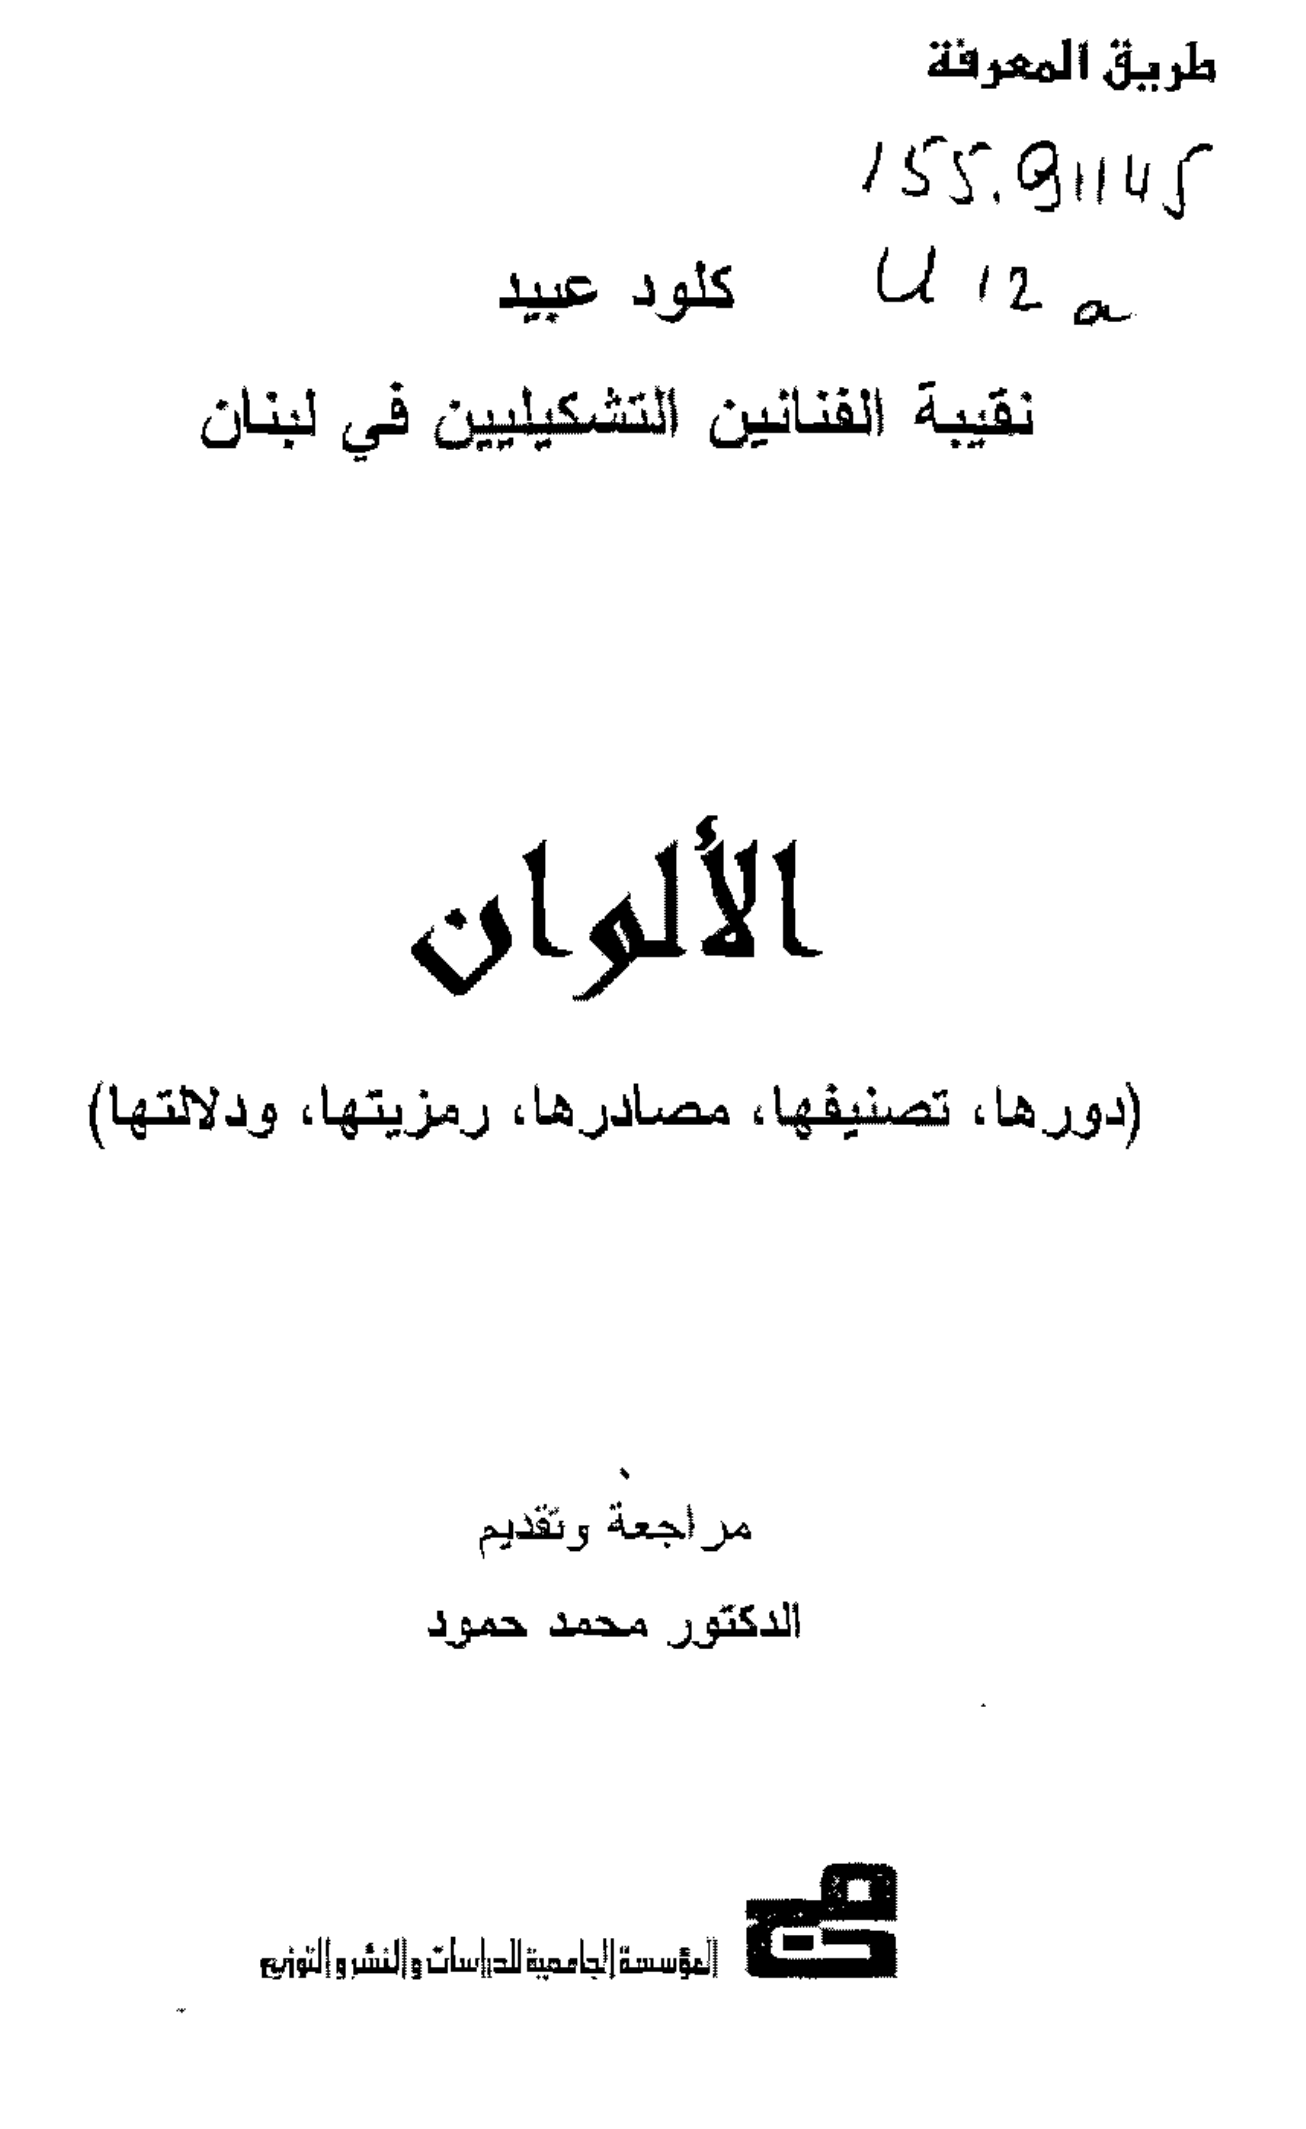 طريق المعرفة
155.91145
U 12 a
كلود عبيد
نقيبة الفنانين التشكيليين في لبنان
الألوان
(دورها، تصنيفها، مصادرها، رمزيتها، ودلالتها)
مراجعة وتقديم
الدكتور محمد حمود
المؤسسة الجامعية للدراسات والنشر والتوزيع